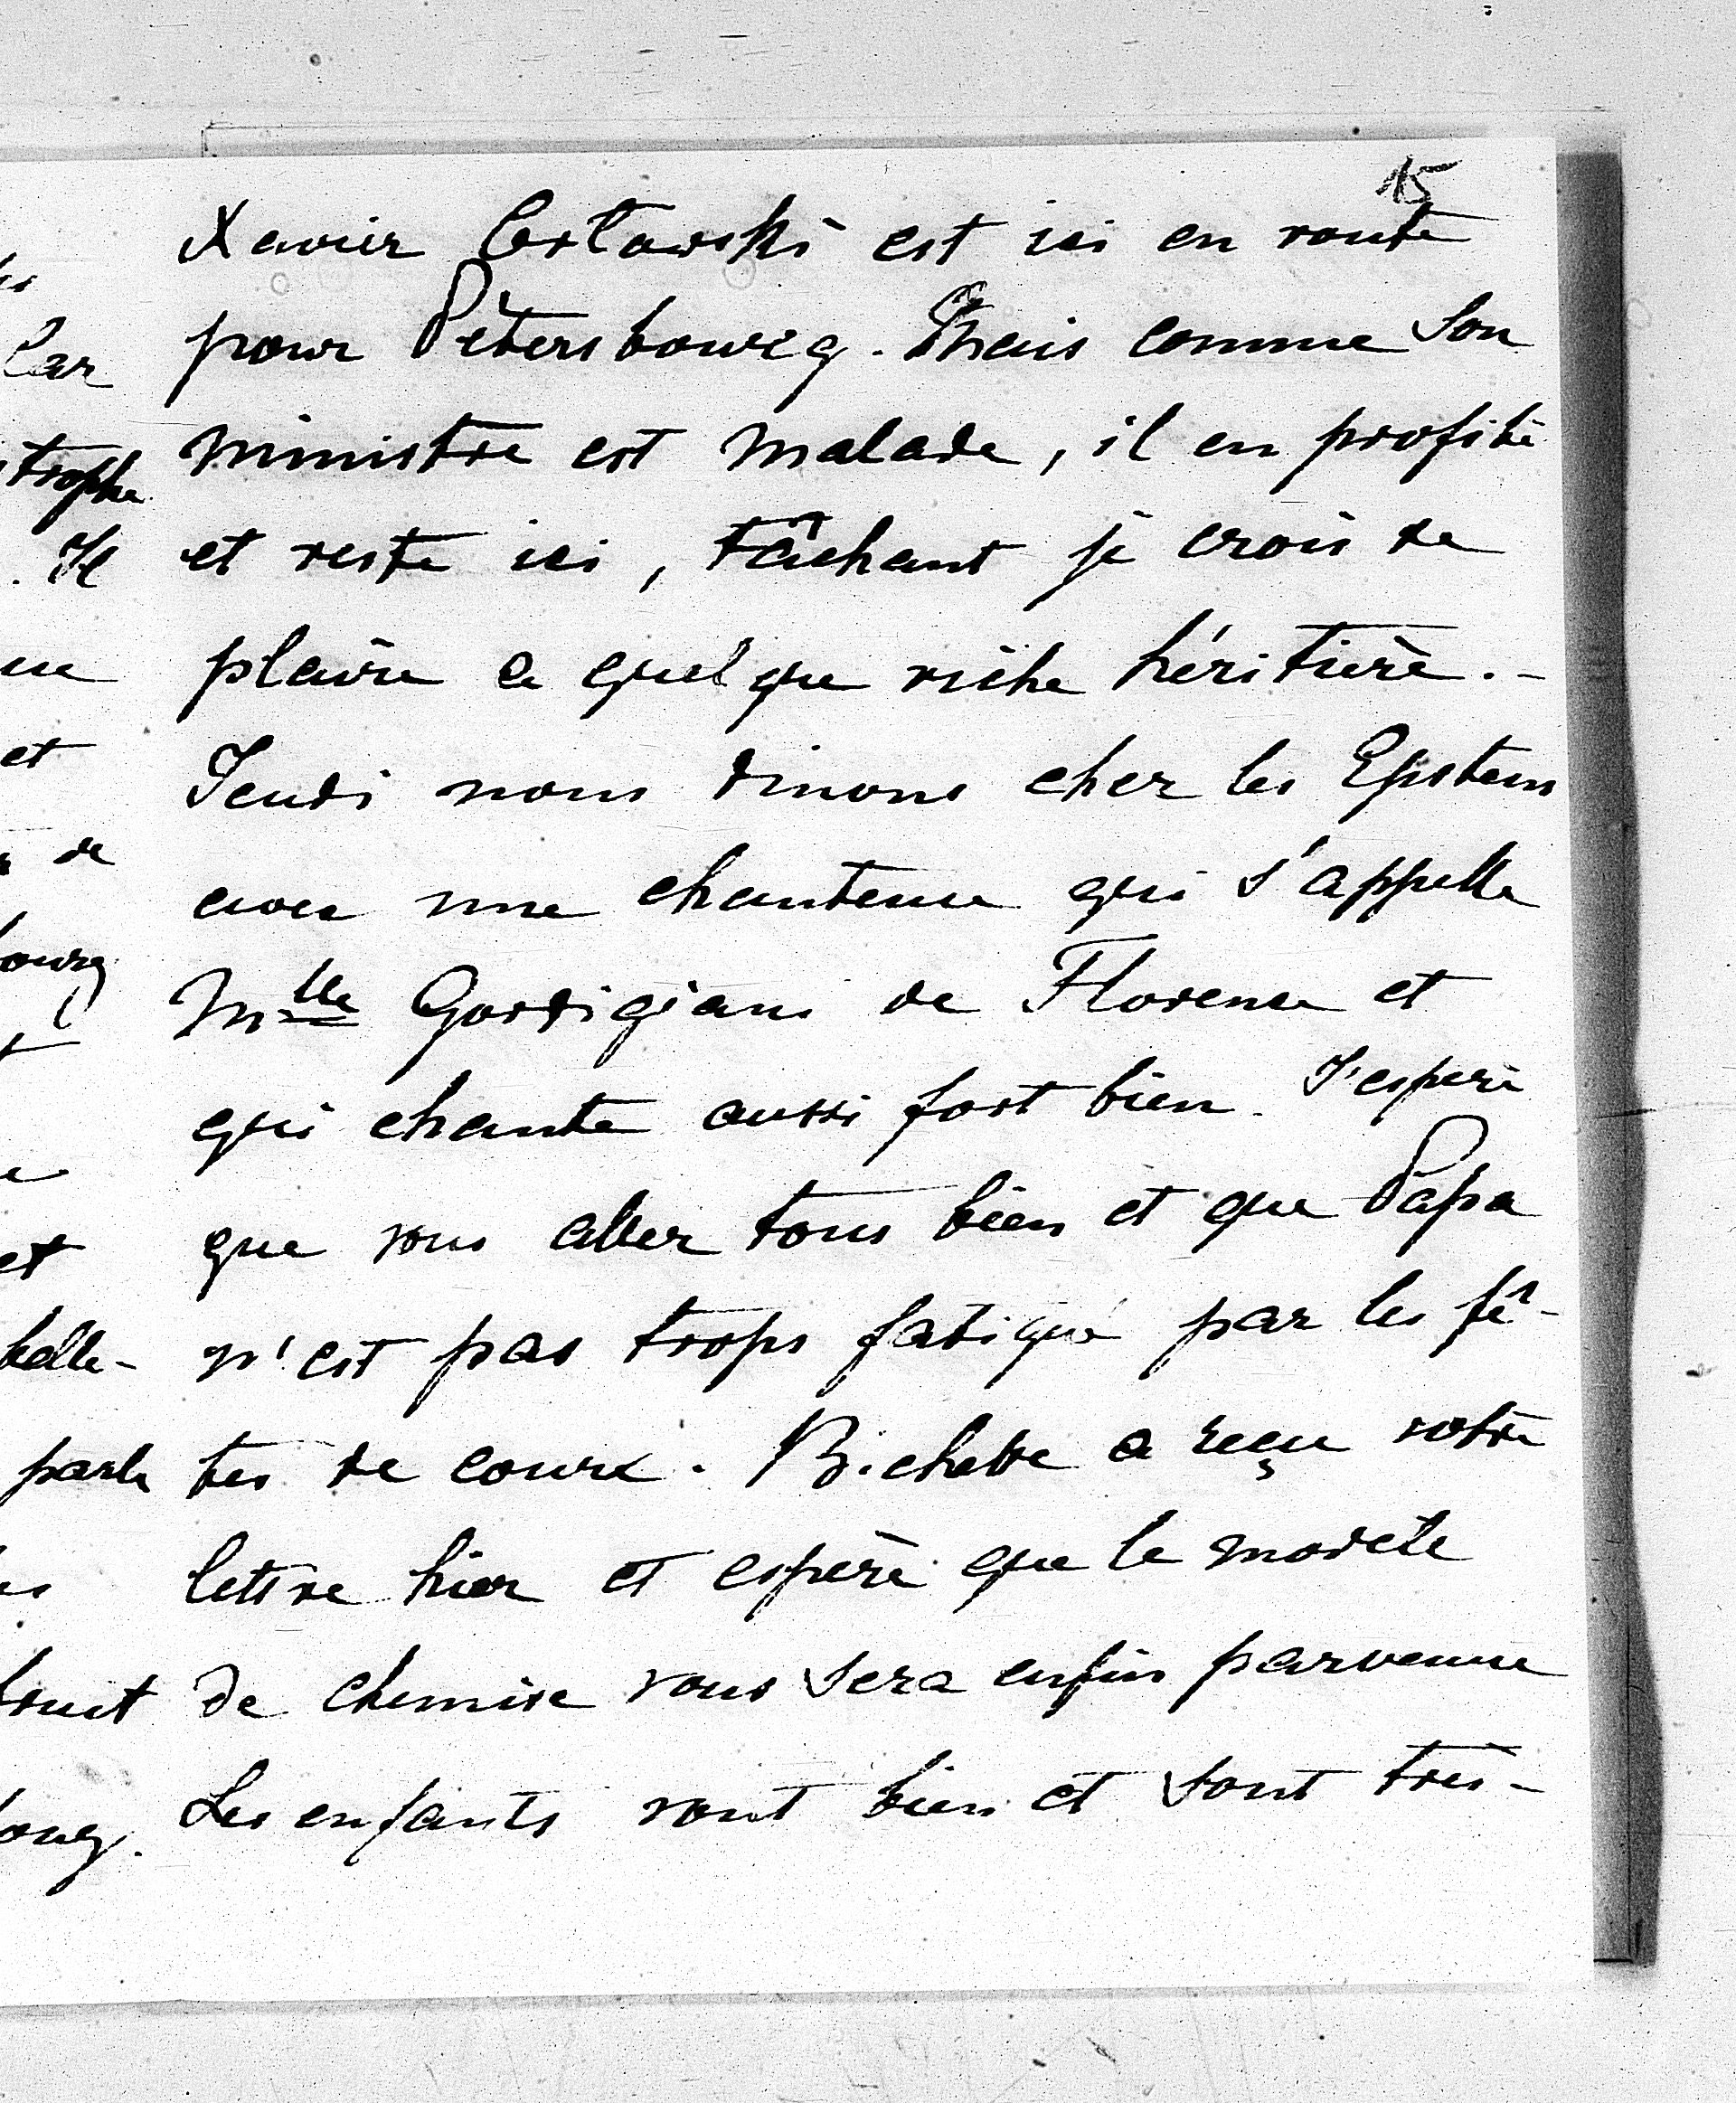 15
Xavier Orlowski est ici en route
pour Pétersbourg. Mais comme son
ministre est malade, il en profite
et reste ici, tâchant je crois de
plaire a quelque riche héritière.-
Jeudi nous dinons chez les Epstein
avec une chanteuse qui s'appelle
Mlle Gordigiani de Florence et
qui chante aussi fort bien. J'espère
que vous allez tous bien et que Papa
n'est pas trops fatigué par les fê-
tes de cour. Bichette a reçu votre
lettre hier et espère que le modele
de chemise vous sera enfin parvenue
Les enfants vont bien et sont très-
Car
trophe
. Il
ue
et
de
bourg
et
belle-
parle
bruit